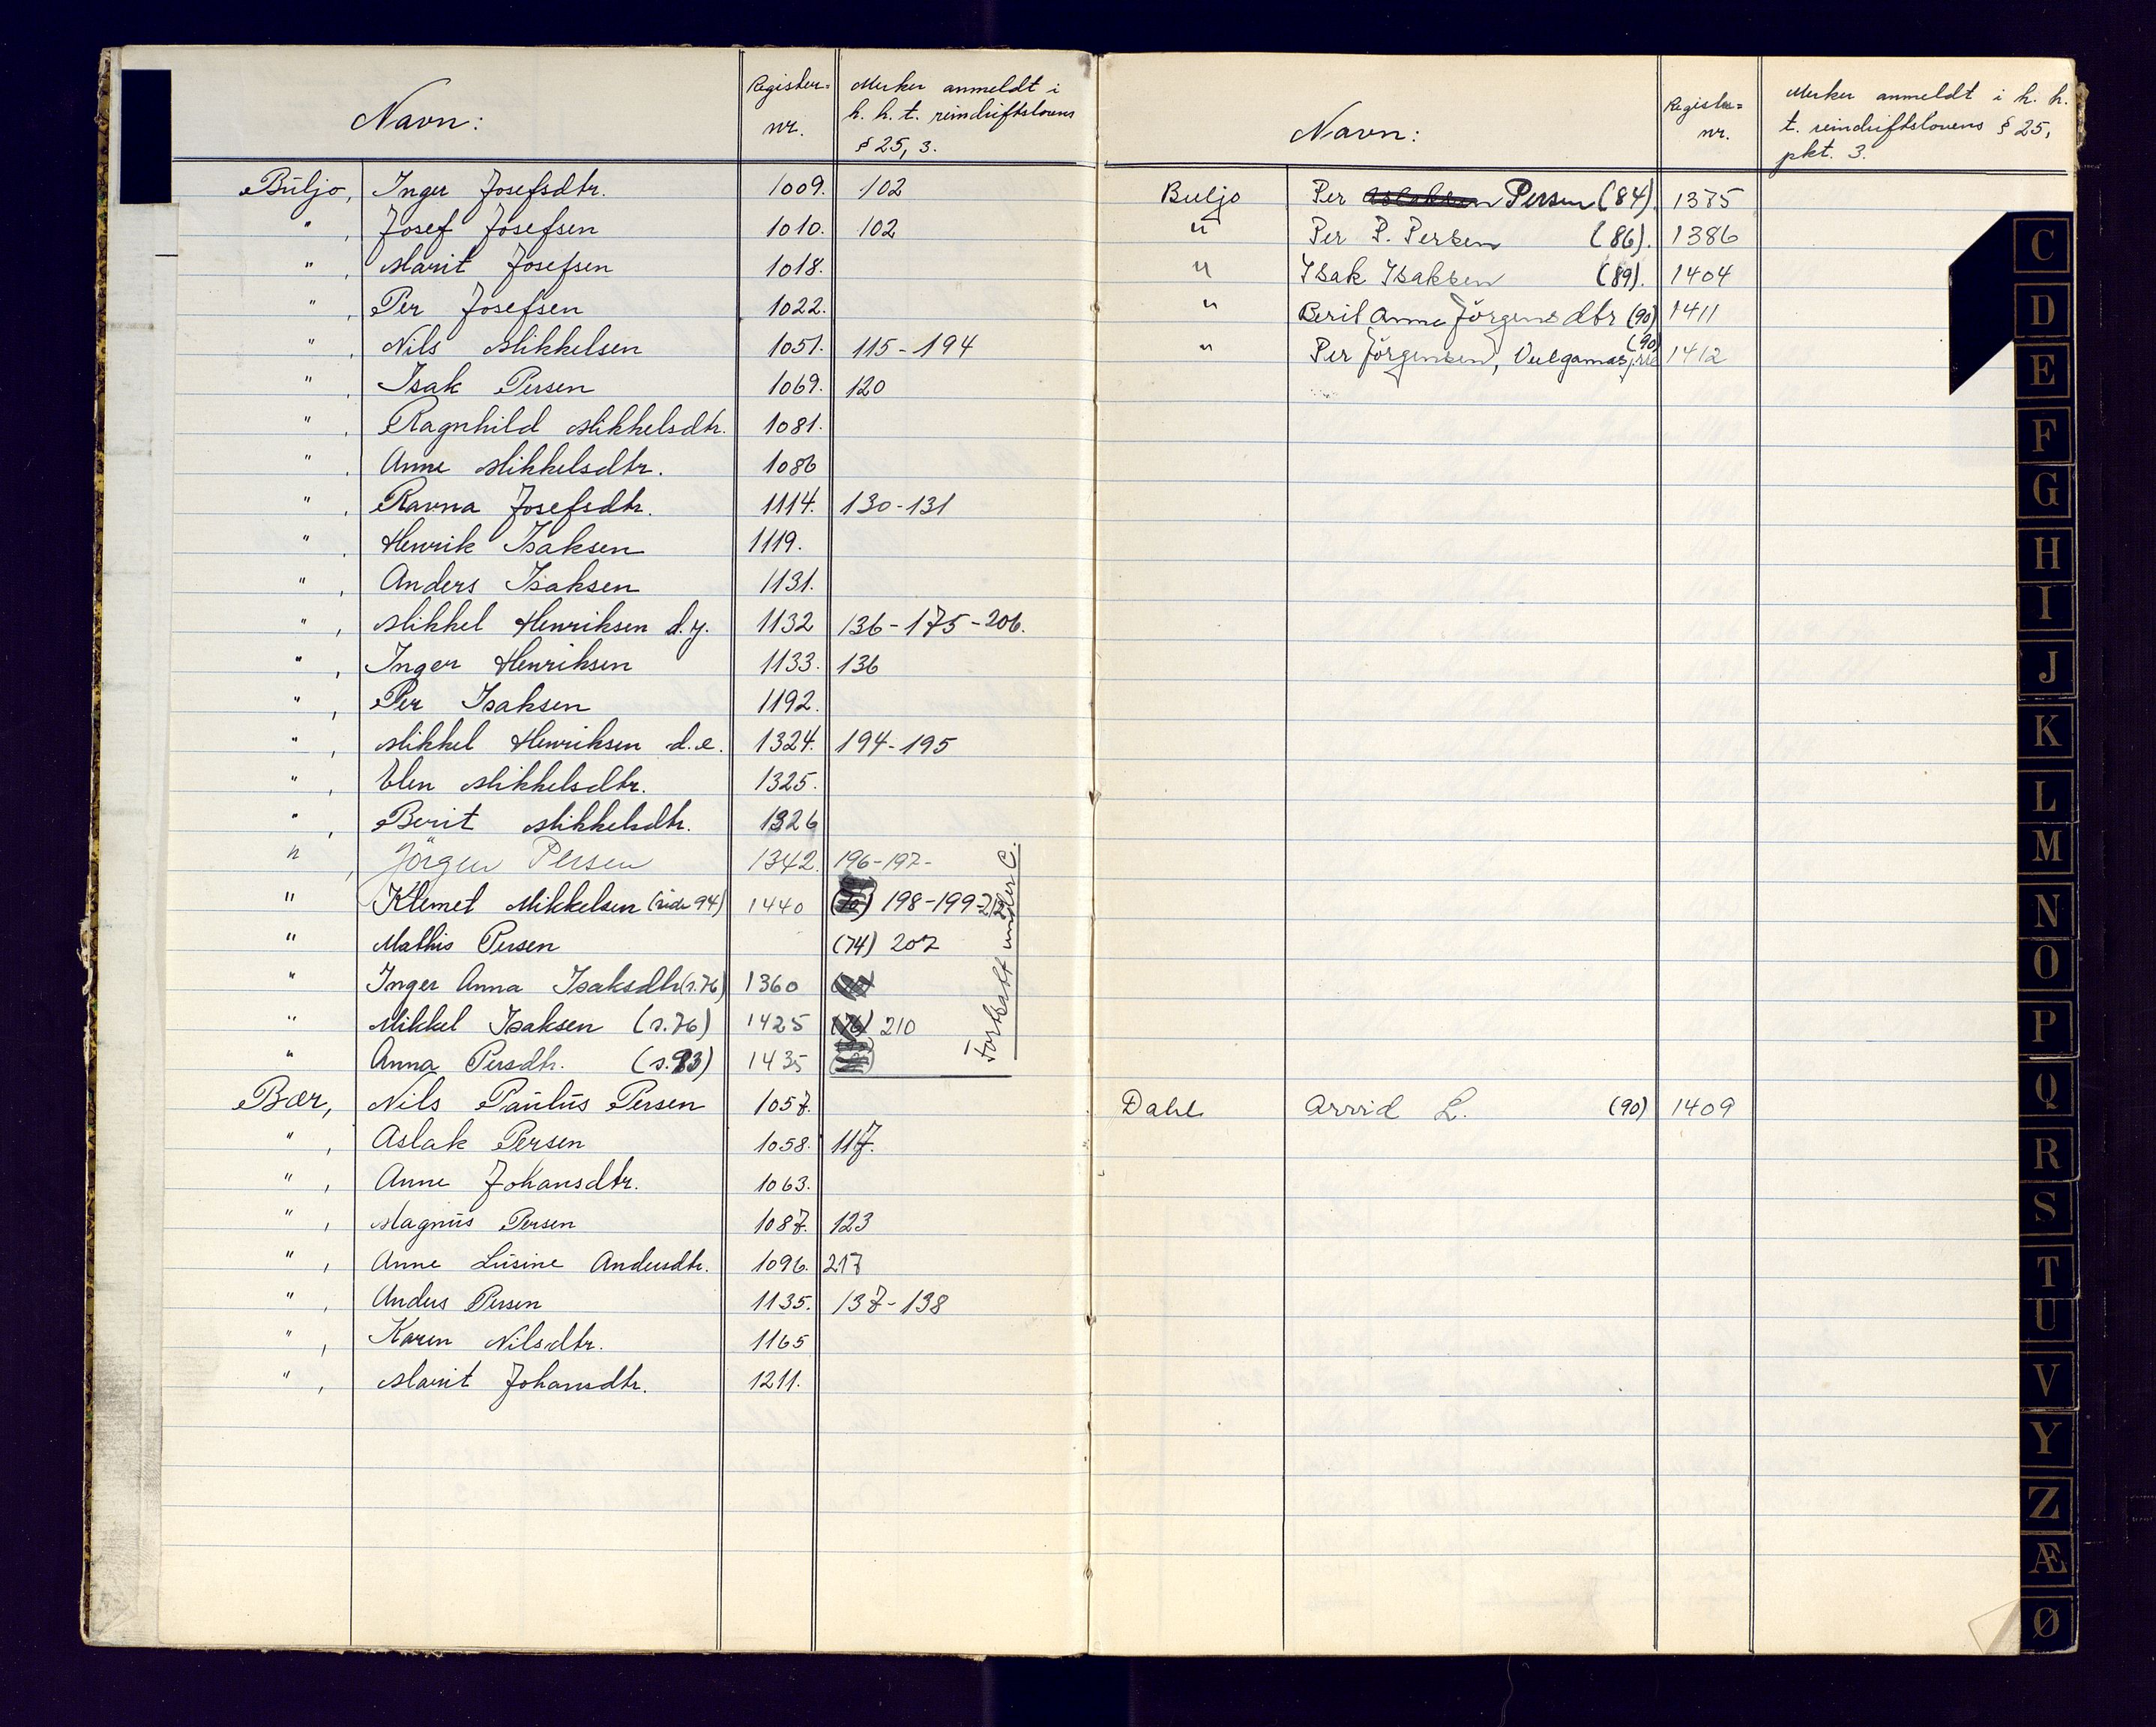 Navn:
Register=
nr.
Merker anmeldt i
h. h. t. reindriftslovens
§ 25, 3.
Buljo, Inger Josefsdtr. 1009. 102
" , Josef Josefsen 1010. 102
" , Marit Josefsen 1018.
" , Per Josefsen 1022.
" , Nils Mikkelsen 1051. 115-194
" , Isak Persen 1069. 120
" , Ragnhild Mikkelsdtr. 1081.
" , Anne Mikkelsdtr. 1086
" , Ravna Josefsdtr. 1114. 130-131
" , Henrik Isaksen 1119.
" , Anders Isaksen 1131.
" , Mikkel Henriksen d.y. 1132 136-175-206.
" , Inger Henriksen 1133. 136
" , Per Isaksen 1192.
" , Mikkel Henriksen d.e. 1324. 194-195
" , Elen Mikkelsdtr. 1325.
" , Berit Mikkelsdtr. 1326
" , Jörgen Persen 1342. 196-197-
" Klemet Mikkelsen (side 94) 1440 198-199-212
" Mathis Persen (74) 207
" Inger Anna Isaksdtr (s.76) 1360
" Mikkel Isaksen (s.76) 1425 (76) 210
" Anna Persdtr. (s.93) 1435
Fortsatt under C.
Bær, Nils Paulus Persen 1057.
" , Aslak Persen 1058. 117.
" , Anne Johansdtr. 1063.
" , Magnus Persen 1087. 123
" , Anne Lusine Andersdtr. 1096. 217
" , Anders Persen 1135. 137-138
" , Karen Nilsdtr. 1165
" , Marit Johansdtr. 1211.
Navn:
Register=
nr.
Merker anmeldt i h. h.
t. reindriftslovens § 25,
pkt. 3.
Buljo Per Aslaksen Persen (84). 1385
" Per P. Persen (86). 1386
" Isak Isaksen (89). 1404
" Beril Anne Jörgensdtr (90) 1411
" Per Jörgensen, (90) 1412
Dahl Arvid L. (90) 1409
C
D
E
F
G
H
I
J
K
L
M
N
O
P
Q
R
S
T
U
V
Y
Z
Æ
Ø